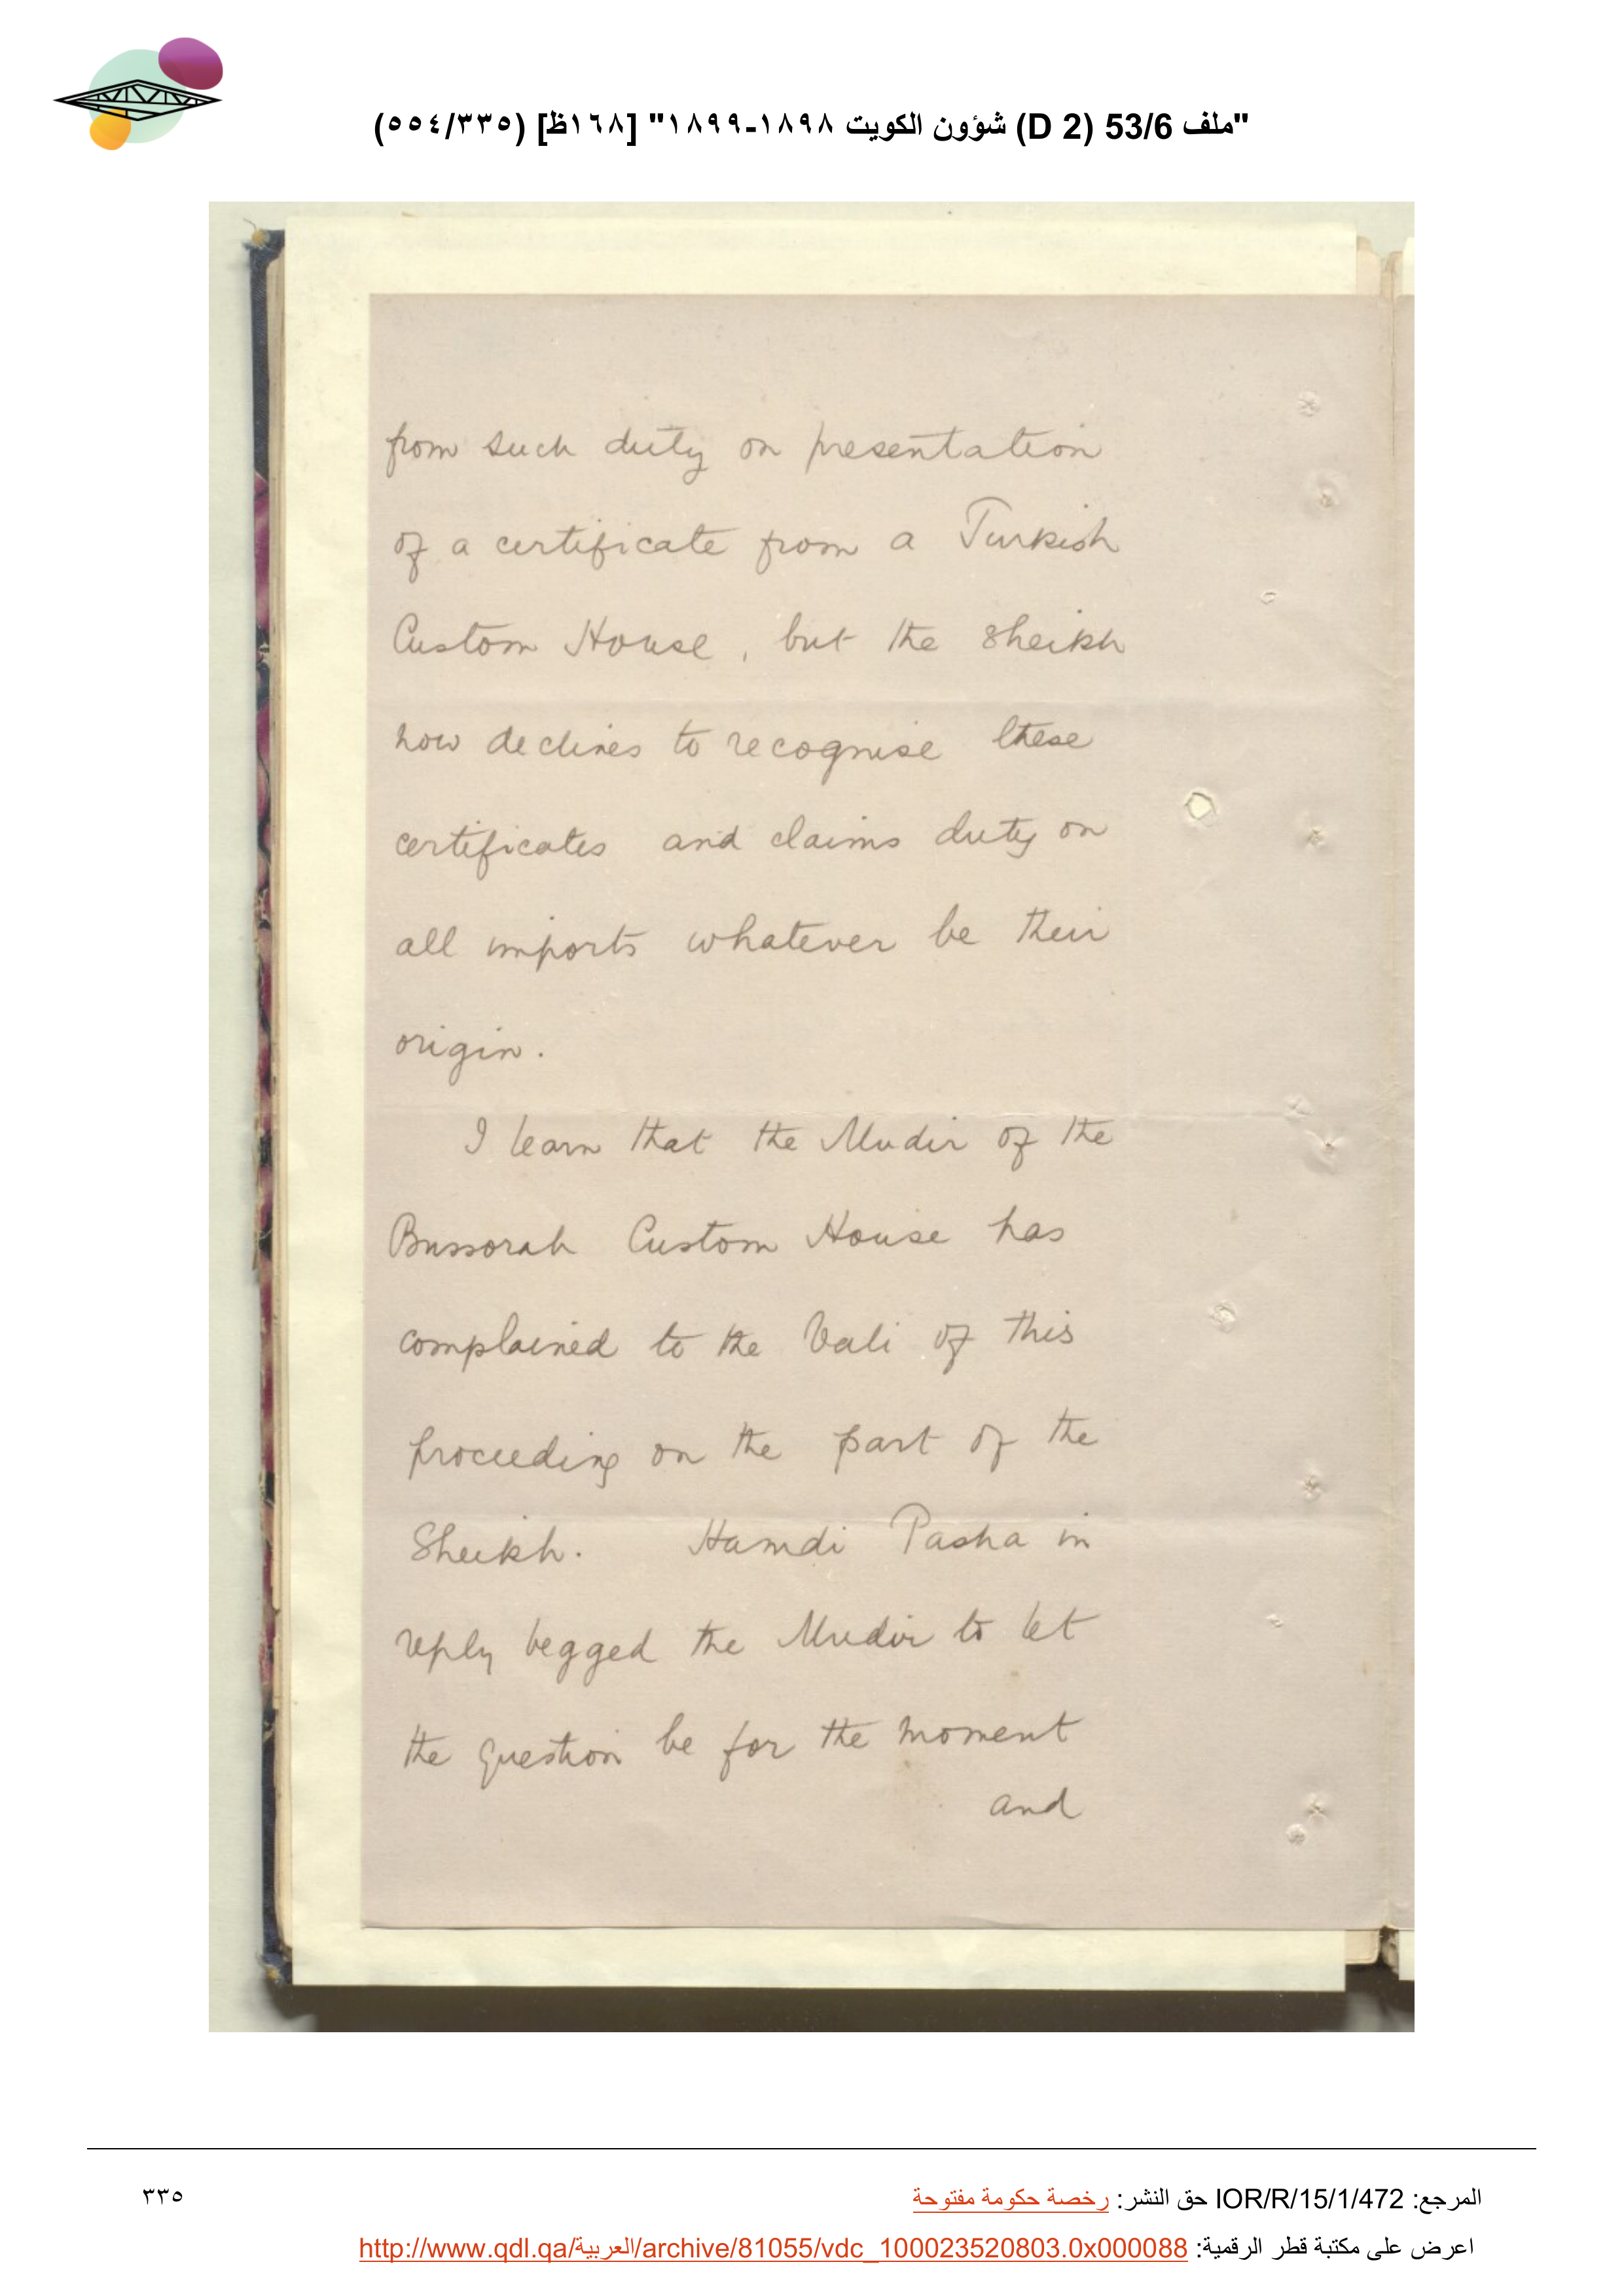 "ملف 53/6 (D 2) شؤون الكويت ١٨٩٨-١٨٩٩" [١٦٨ظ] (٥٥٤/٣٣٥)
from such duty on presentation
of a certificate from a Turkish
Custom House, but the Sheikh
now declines to recognise these
certificates and claims duty on
all imports whatever be their
origin.
I learn that the Mudir of the
Bussorah Custom House has
complained to the Vali of this
proceeding on the part of the
Sheikh. Hamdi Pasha in
reply begged the Mudir to let
the question be for the moment
and
المرجع: IOR/R/15/1/472 حق النشر: رخصة حكومة مفتوحة
٣٣٥
اعرض على مكتبة قطر الرقمية: http://www.qdl.qa/العربية/archive/81055/vdc_100023520803.0x000088